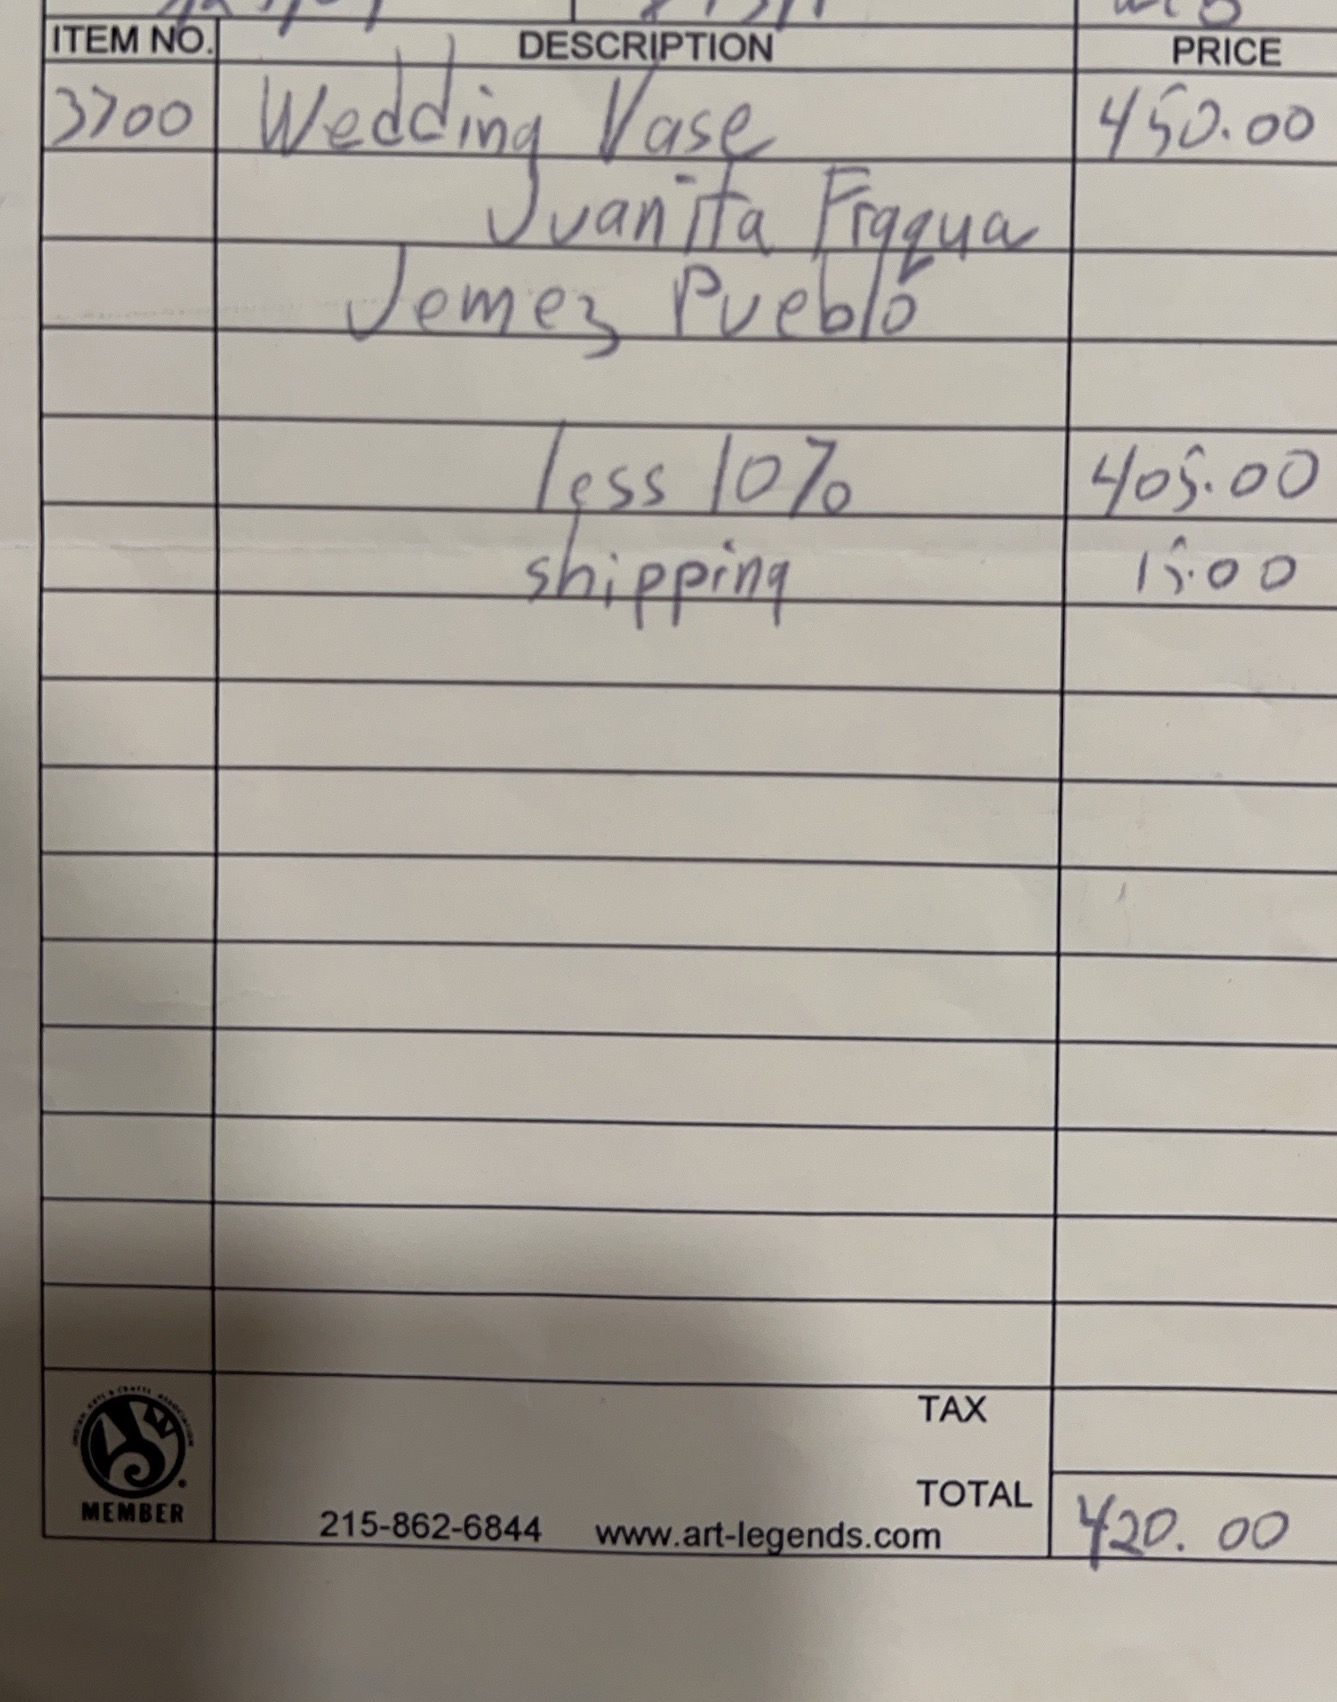 ITEM NO. DESCRIPTION PRICE
3700 Wedding Vase 450.00
Juanita Fragua
Jemez Pueblo
less 10% 405.00
shipping 15.00
TAX
TOTAL 420.00
INDIAN ARTS & CRAFTS ASSOCIATION
MEMBER
215-862-6844 www.art-legends.com